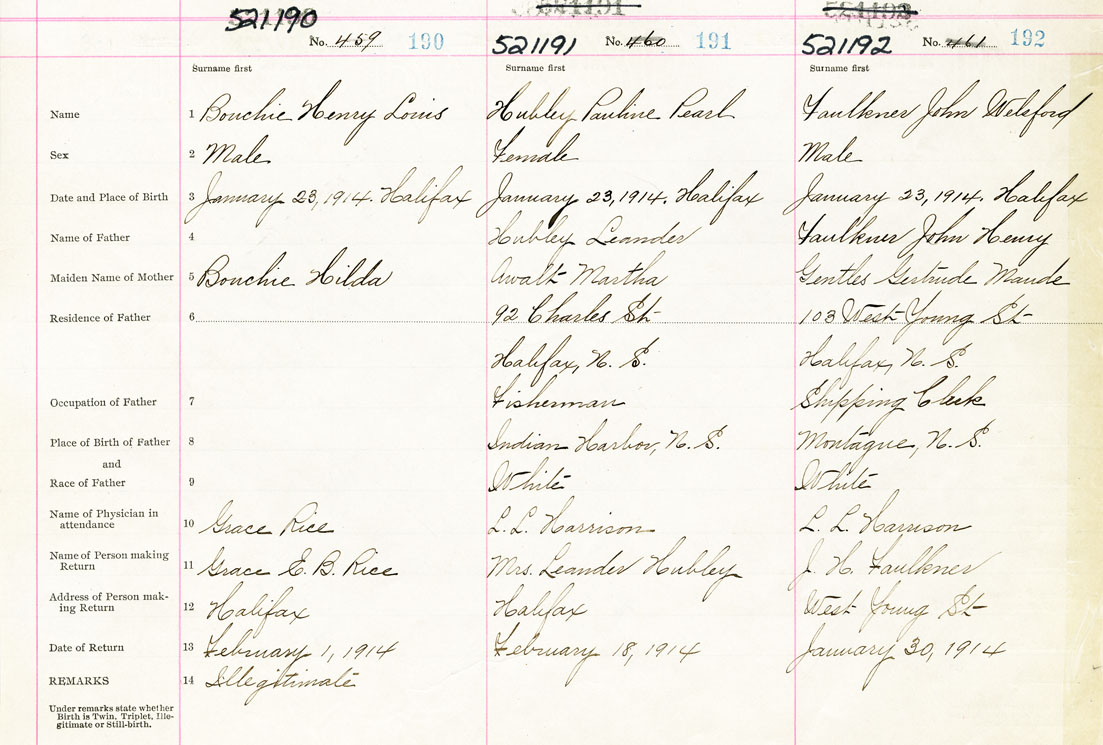 521190 521191 521192
No. 459 190 No. 460 191 No. 461 192
Surname first Surname first Surname first
Name 1 Bouchie Henry Louis Hubley Pauline Pearl Faulkner John Welsford
Sex 2 Male Female Male
Date and Place of Birth 3 January 23, 1914. Halifax January 23, 1914. Halifax January 23, 1914. Halifax
Name of Father 4 Hubley Leander Faulkner John Henry
Maiden Name of Mother 5 Bouchie Hilda Awalt Martha Gentles Gertrude Maude
Residence of Father 6 92 Charles St 103 West Young St
Halifax, N. S. Halifax, N. S.
Occupation of Father 7 Fisherman Shipping Clerk
Place of Birth of Father 8 Indian Harbor, N. S. Montague, N. S.
and
Race of Father 9 White White
Name of Physician in
attendance 10 Grace Rice L. L. Harrison L. L. Harrison
Name of Person making
Return 11 Grace E. B. Rice Mrs. Leander Hubley J. H. Faulkner
Address of Person mak-
ing Return 12 Halifax Halifax West Young St
Date of Return 13 February 1, 1914 February 18, 1914 January 30, 1914
REMARKS 14 Illegitimate
Under remarks state whether
Birth is Twin, Triplet, Ille-
gitimate or Still-birth.